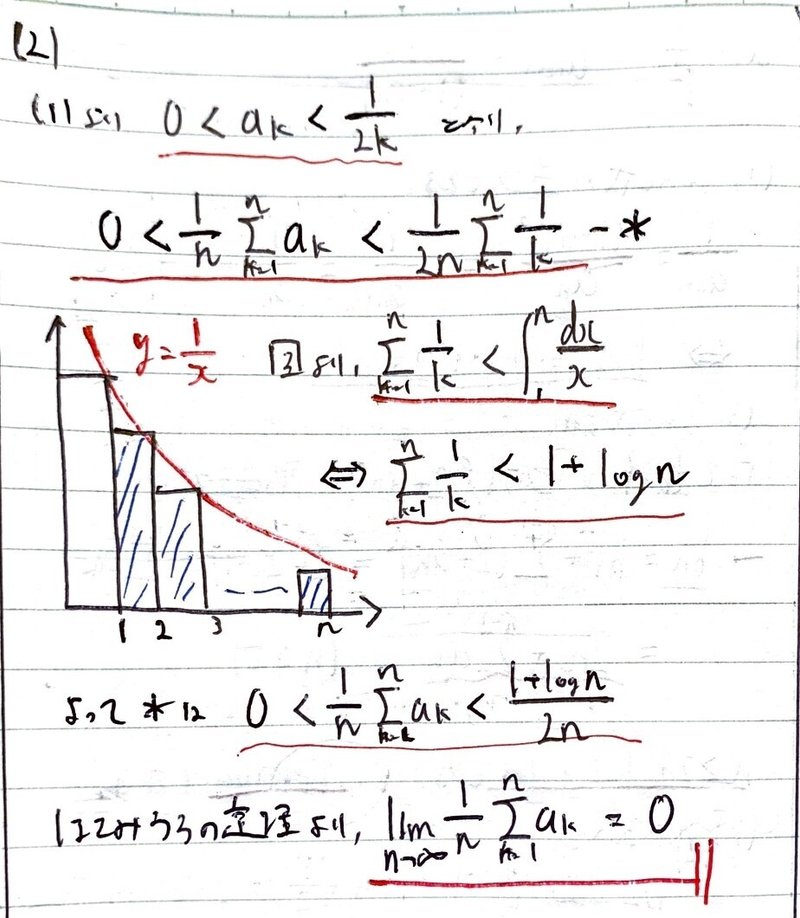 (2)
(1)より 0 < aₖ < 1/(2k) となり、
0 < 1/n Σ[k=1→n] aₖ < 1/(2n) Σ[k=1→n] 1/k − *
y = 1/x 図より、 Σ[k=1→n] 1/k < ∫[1→n] dx/x
⇔ Σ[k=1→n] 1/k < 1 + log n
1 2 3 n
よって * は 0 < 1/n Σ[k=1→n] aₖ < (1 + log n)/(2n)
はさみうちの定理より、 lim[n→∞] 1/n Σ[k=1→n] aₖ = 0